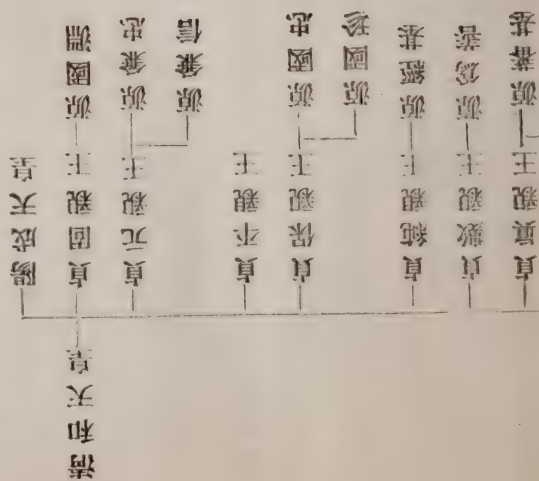 清和天皇
陽成天皇
貞固親王 源國淵
貞元親王 源兼忠
源兼信
貞平親王
貞保親王 源國忠
源國珍
貞純親王 源經基
貞數親王 源爲善
貞眞親王 源蕃基